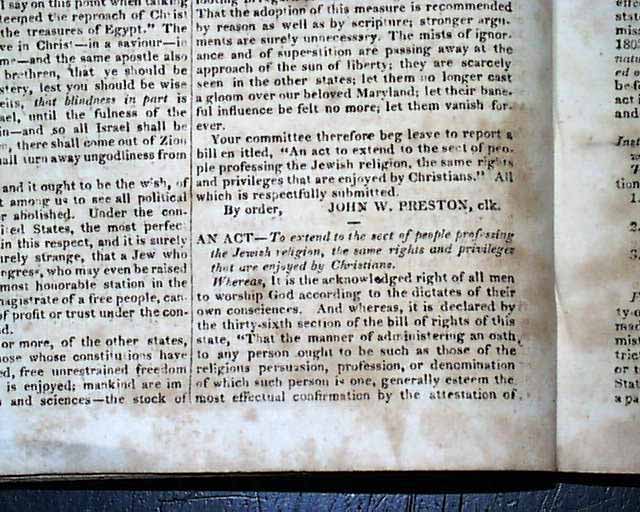 l say on this point when talking
teemed the reproach of Christ
the treasures of Egypt." The
ve in Christ—in a saviour—i
me—and the same apostle also
brethren, that ye should be
stery, lest you should be wise
eits, that blindness in part is
ael, until the fulness of the
in—and so all Israel shall be
n, there shall come out of Zion
hall turn away ungodliness from
and it ought to be the wish, of
t among us to see all political
r abolished. Under the con-
ited States, the most perfec
in this respect, and it is surely
urely strange, that a Jew who
ongress, who may even be raised
most honorable station in the
magistrate of a free people, can-
of profit or trust under the con-
d.
or more, of the other states,
hose whose constitutions have
ed, free unrestrained freedom
is enjoyed; mankind are im
and sciences—the stock of
That the adoption of this measure is recommended
by reason as well as by scripture; stronger argu-
ments are surely unnecessary. The mists of ignor-
ance and of superstition are passing away at the
approach of the sun of liberty; they are scarcely
seen in the other states; let them no longer cast
a gloom over our beloved Maryland; let their bane-
ful influence be felt no more; let them vanish for-
ever.
Your committee therefore beg leave to report a
bill entitled, "An act to extend to the sect of peo-
ple professing the Jewish religion, the same rights
and privileges that are enjoyed by Christians." All
which is respectfully submitted.
By order, JOHN W. PRESTON, clk.
AN ACT—To extend to the sect of people professing
the Jewish religion, the same rights and privileges
that are enjoyed by Christians.
Whereas, It is the acknowledged right of all men
to worship God according to the dictates of their
own consciences. And whereas, it is declared by
the thirty-sixth section of the bill of rights of this
state, "That the manner of administering an oath
to any person ought to be such as those of the
religious persuasion, profession, or denomination
of which such person is one, generally esteem the
most effectual confirmation by the attestation of